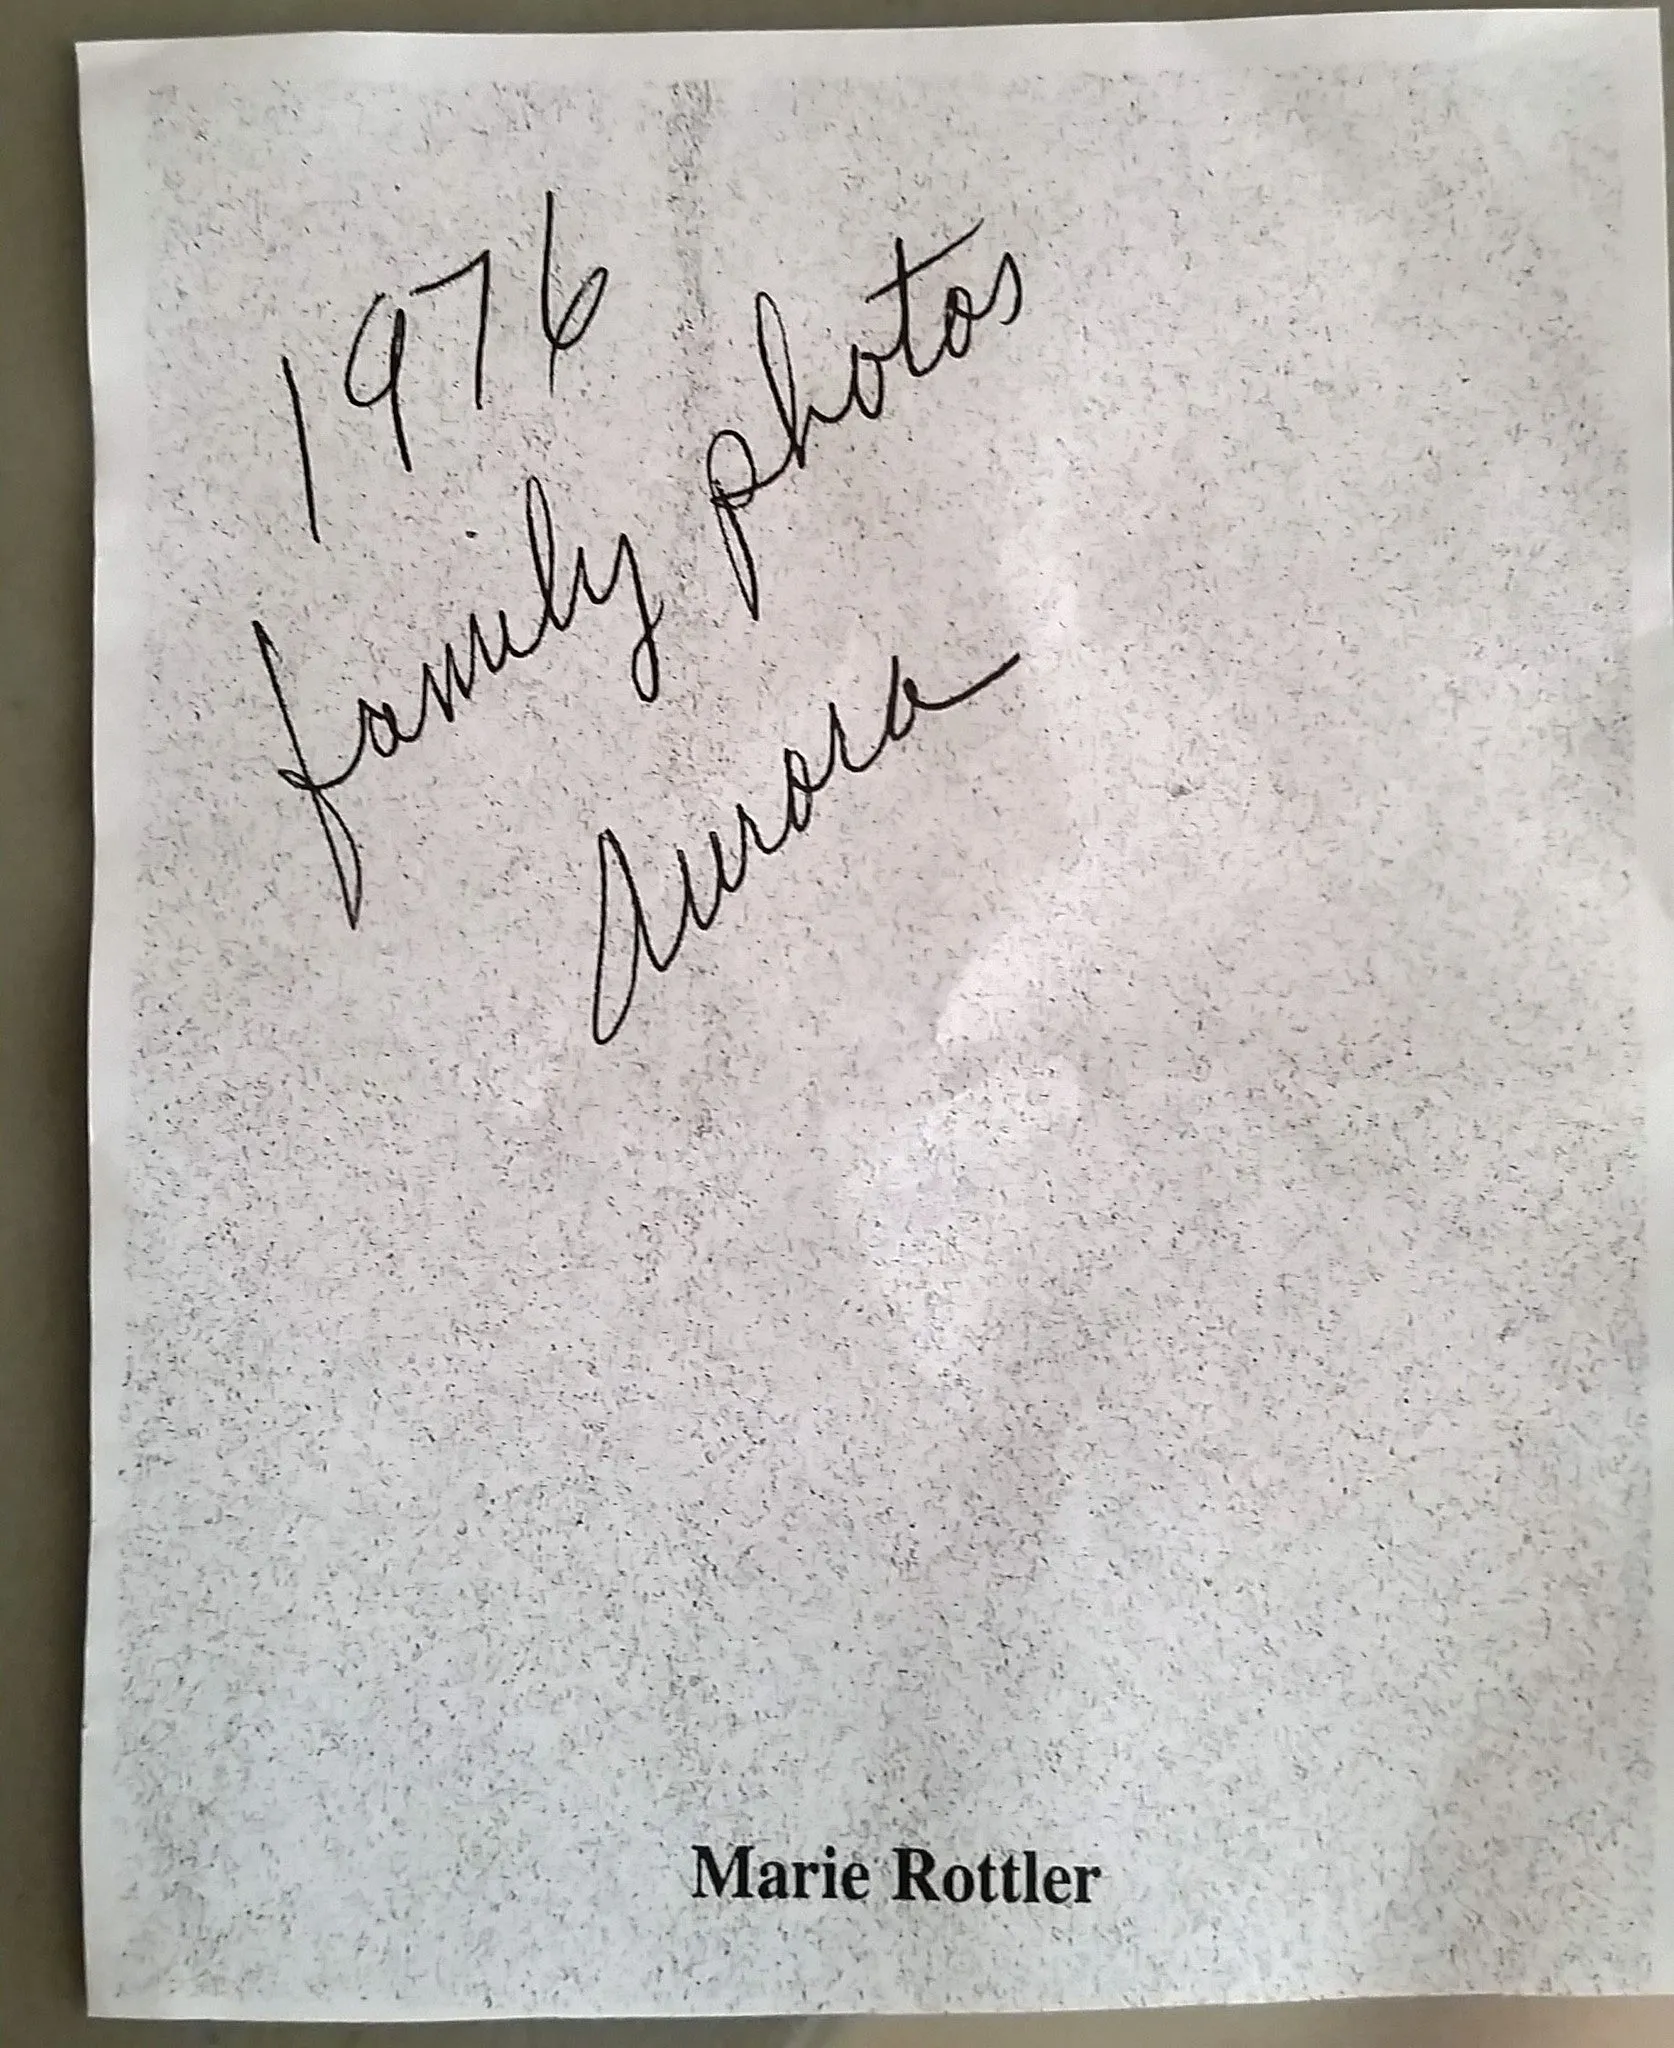 1976
family photos
Aurora
Marie Rottler